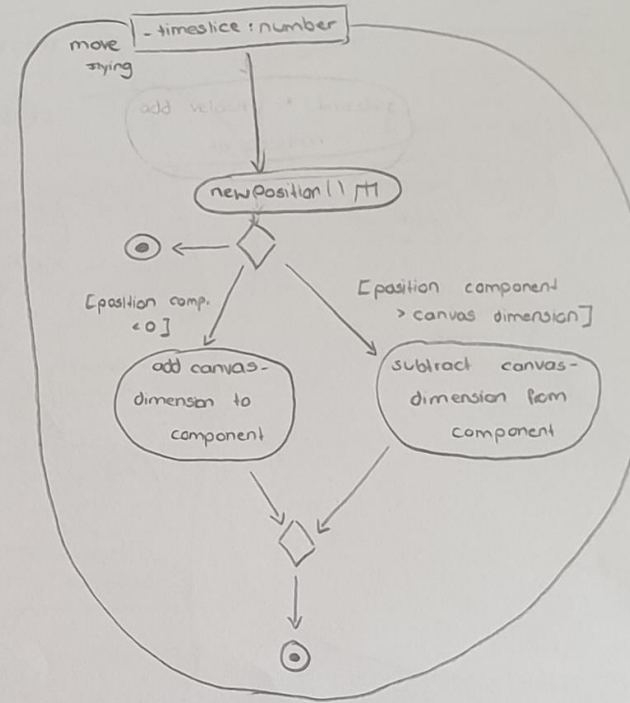 - timeslice : number
move
flying
add velo
newPosition()
[position comp.
< 0]
[position component
> canvas dimension]
add canvas-
dimension to
component
subtract canvas-
dimension from
component